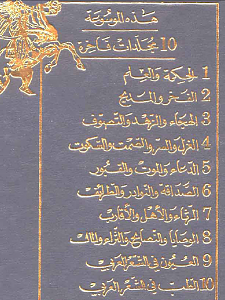 هذه الموسوعة
10 مجلدات فاخرة
1 الحكمة والعلم
2 الفخر والمديح
3 الهجاء والزهد والتصوف
4 الغزل والسر والصمت والسكوت
5 الدعاء والموت والقبور
6 الصداقة والنوادر والطرائف
7 الرثاء والأهل والأقارب
8 الوصايا والنصائح والثراء والمال
9 العيون في الشعر العربي
10 الطب في الشعر العربي